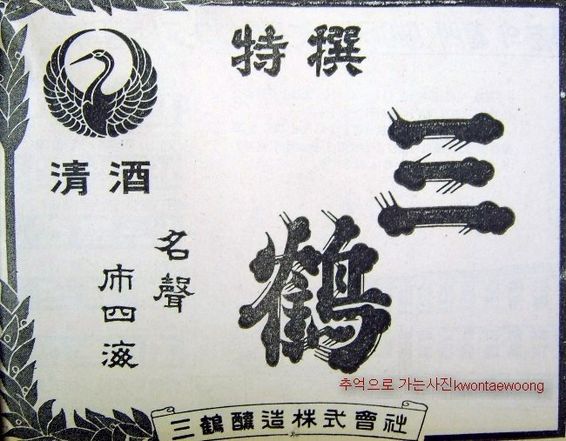 特撰
三鶴
清酒
名聲
市四海
추억으로 가는사진kwontaewoong
三鶴釀造株式會社